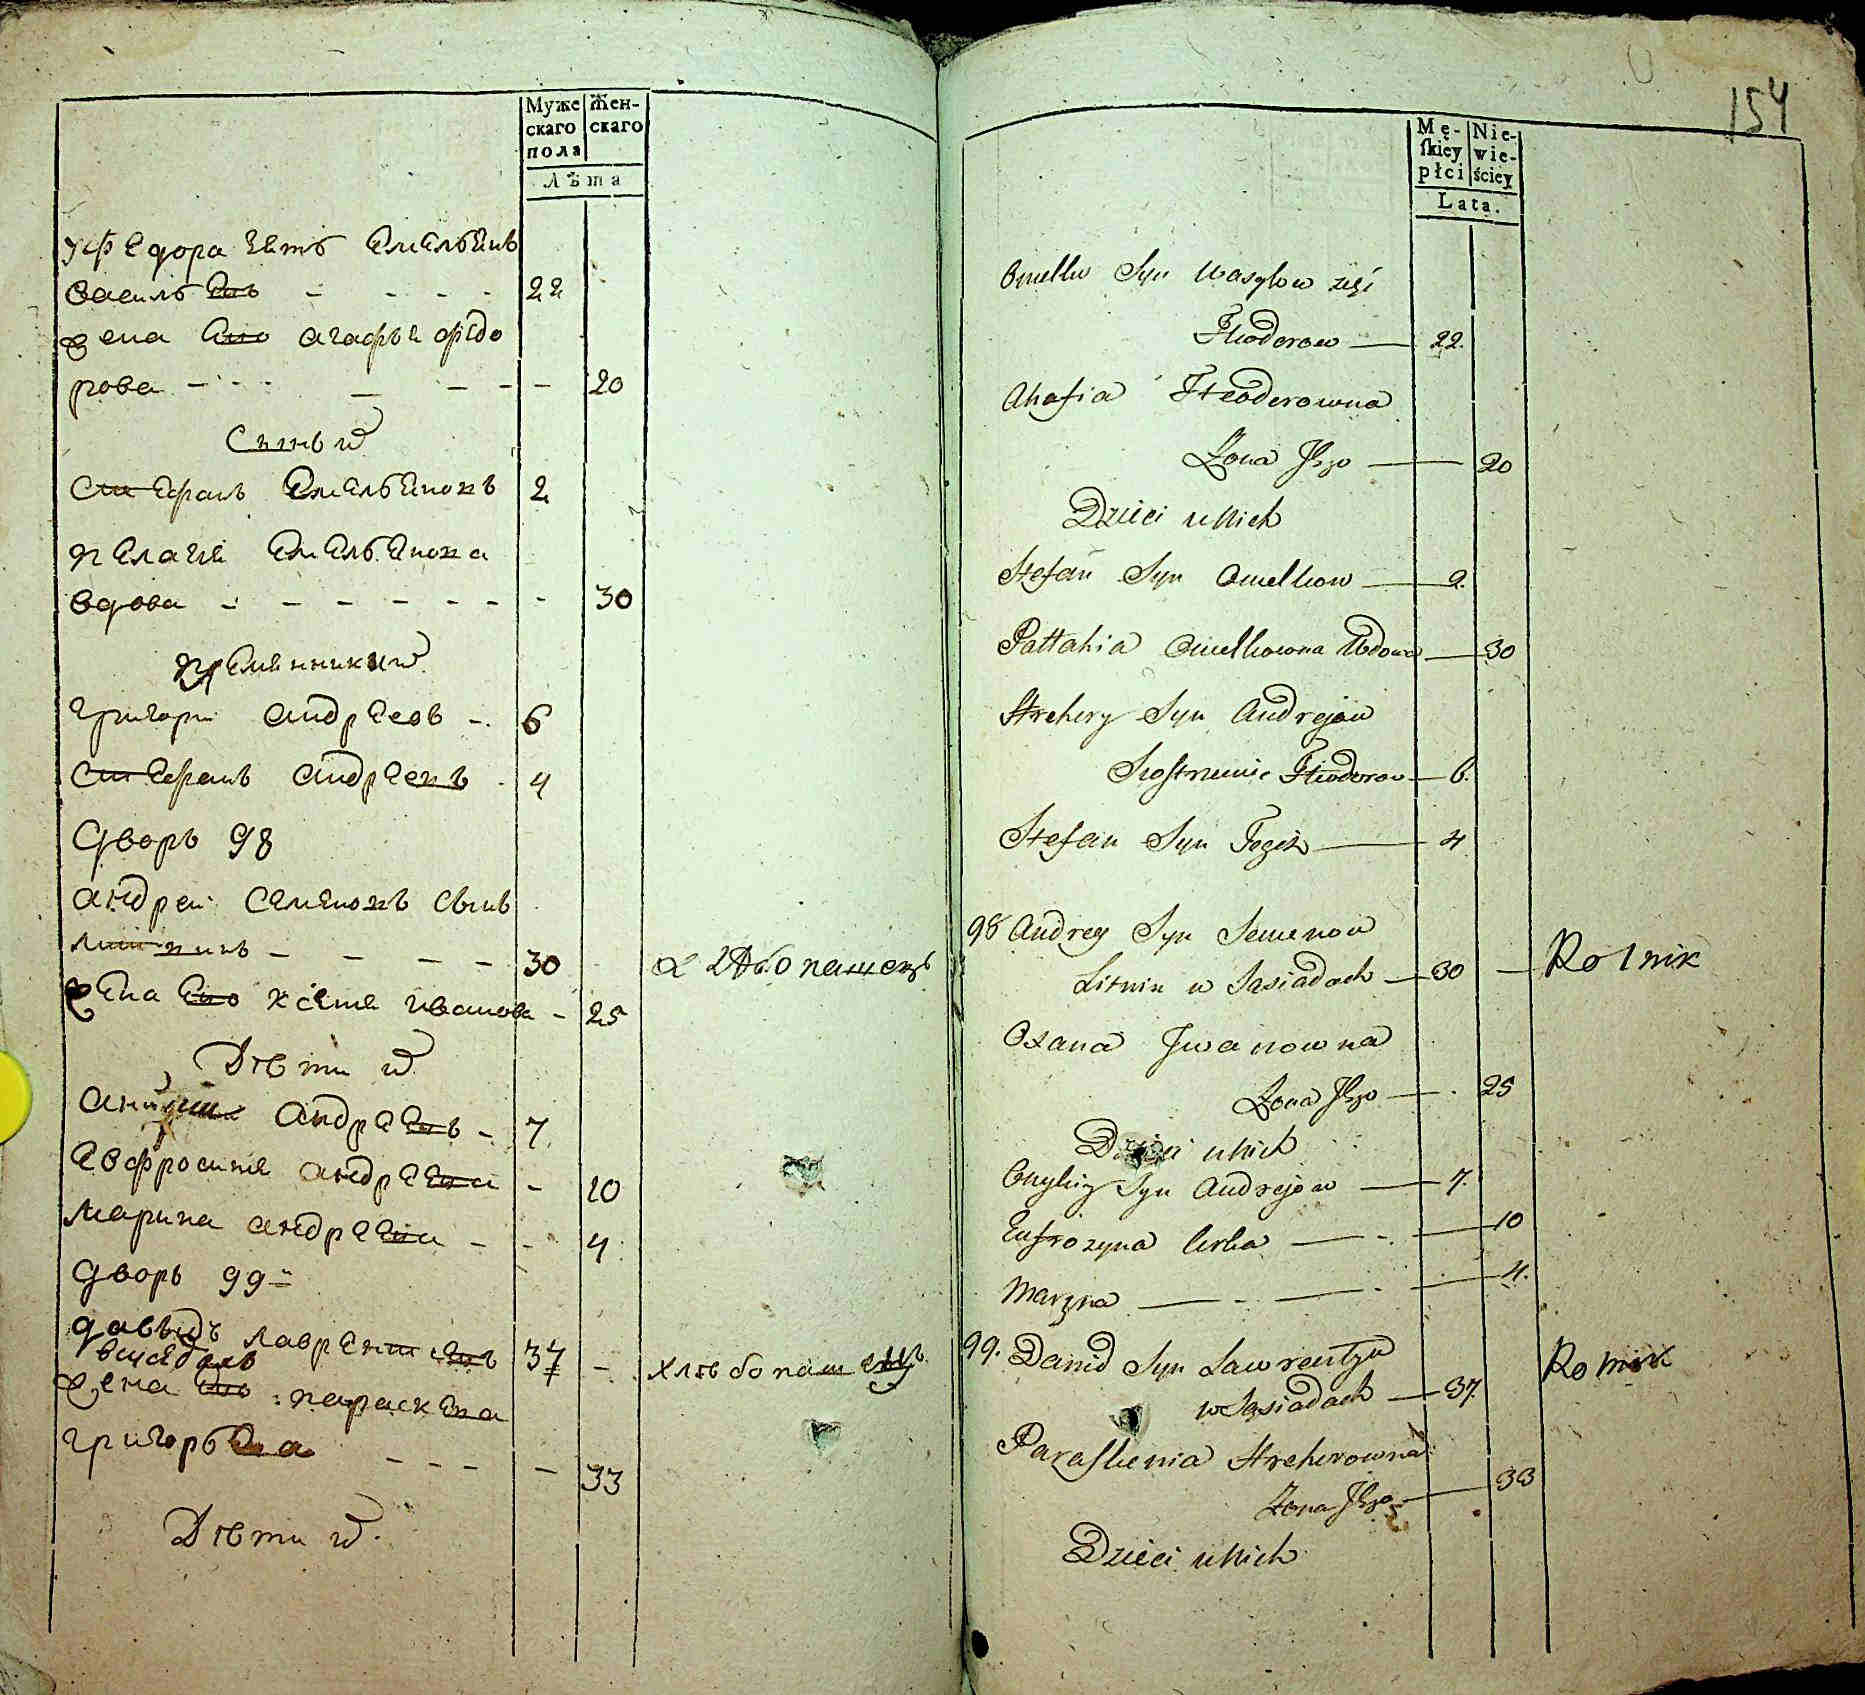 Муже
скаго
пола
Жен-
скаго
Лѣта
уФедора зять Емельянъ
Василь евъ - - - - 22
жена его агафья фѣдо
рова - - - - - 20
Сынъ
Стефанъ Емельяновъ 2
пелагея Емельянова
вдова - - - - - - 30
племянники
григори андреевъ - 6
Стефанъ андреевъ - 4
дворъ 98
андреи Семеновъ сынъ
литвинъ - - - - 30 хлѣбопашецъ
жена его ксеня иванова - 25
Дѣти
андреевъ - 7
евфросиня андреева - 10
марина андреева - - 4
дворъ 99
давыдъ лаврентиевъ 37 - хлѣбопашецъ
жена его параскева
григорьева - - - - 33
Дѣти
154
Mę-
ſkiey
płci
Nie-
wie-
ściey
Lata.
Omelko Syn Wasylow zięć
Fteodorow — 22.
Ahafia Fteodorowna
Żona Jego — 20
Dzieci u Nich
Stefan Syn Omelkow — 2.
Pattahia Omelkowna Wdowa — 30
Hrehory Syn Andrejow
Siostrzenic Fteodorow — 6.
Stefan Syn Tegoż — 4
98 Andrey Syn Semenow
Litwin w Sąsiadach — 30 — Rolnik
Oxana Jwanowna
Żona Jego — 25
Dzieci u Nich
Syn Andrejow — 7.
Eufrozyna Corka — 10
Maryna — 4.
99. Dawid Syn Lawrentyu
w Sąsiadach — 37. Rolnik
Paraskewia Hrehorowna
Żona Jego — 33
Dzieci u Nich